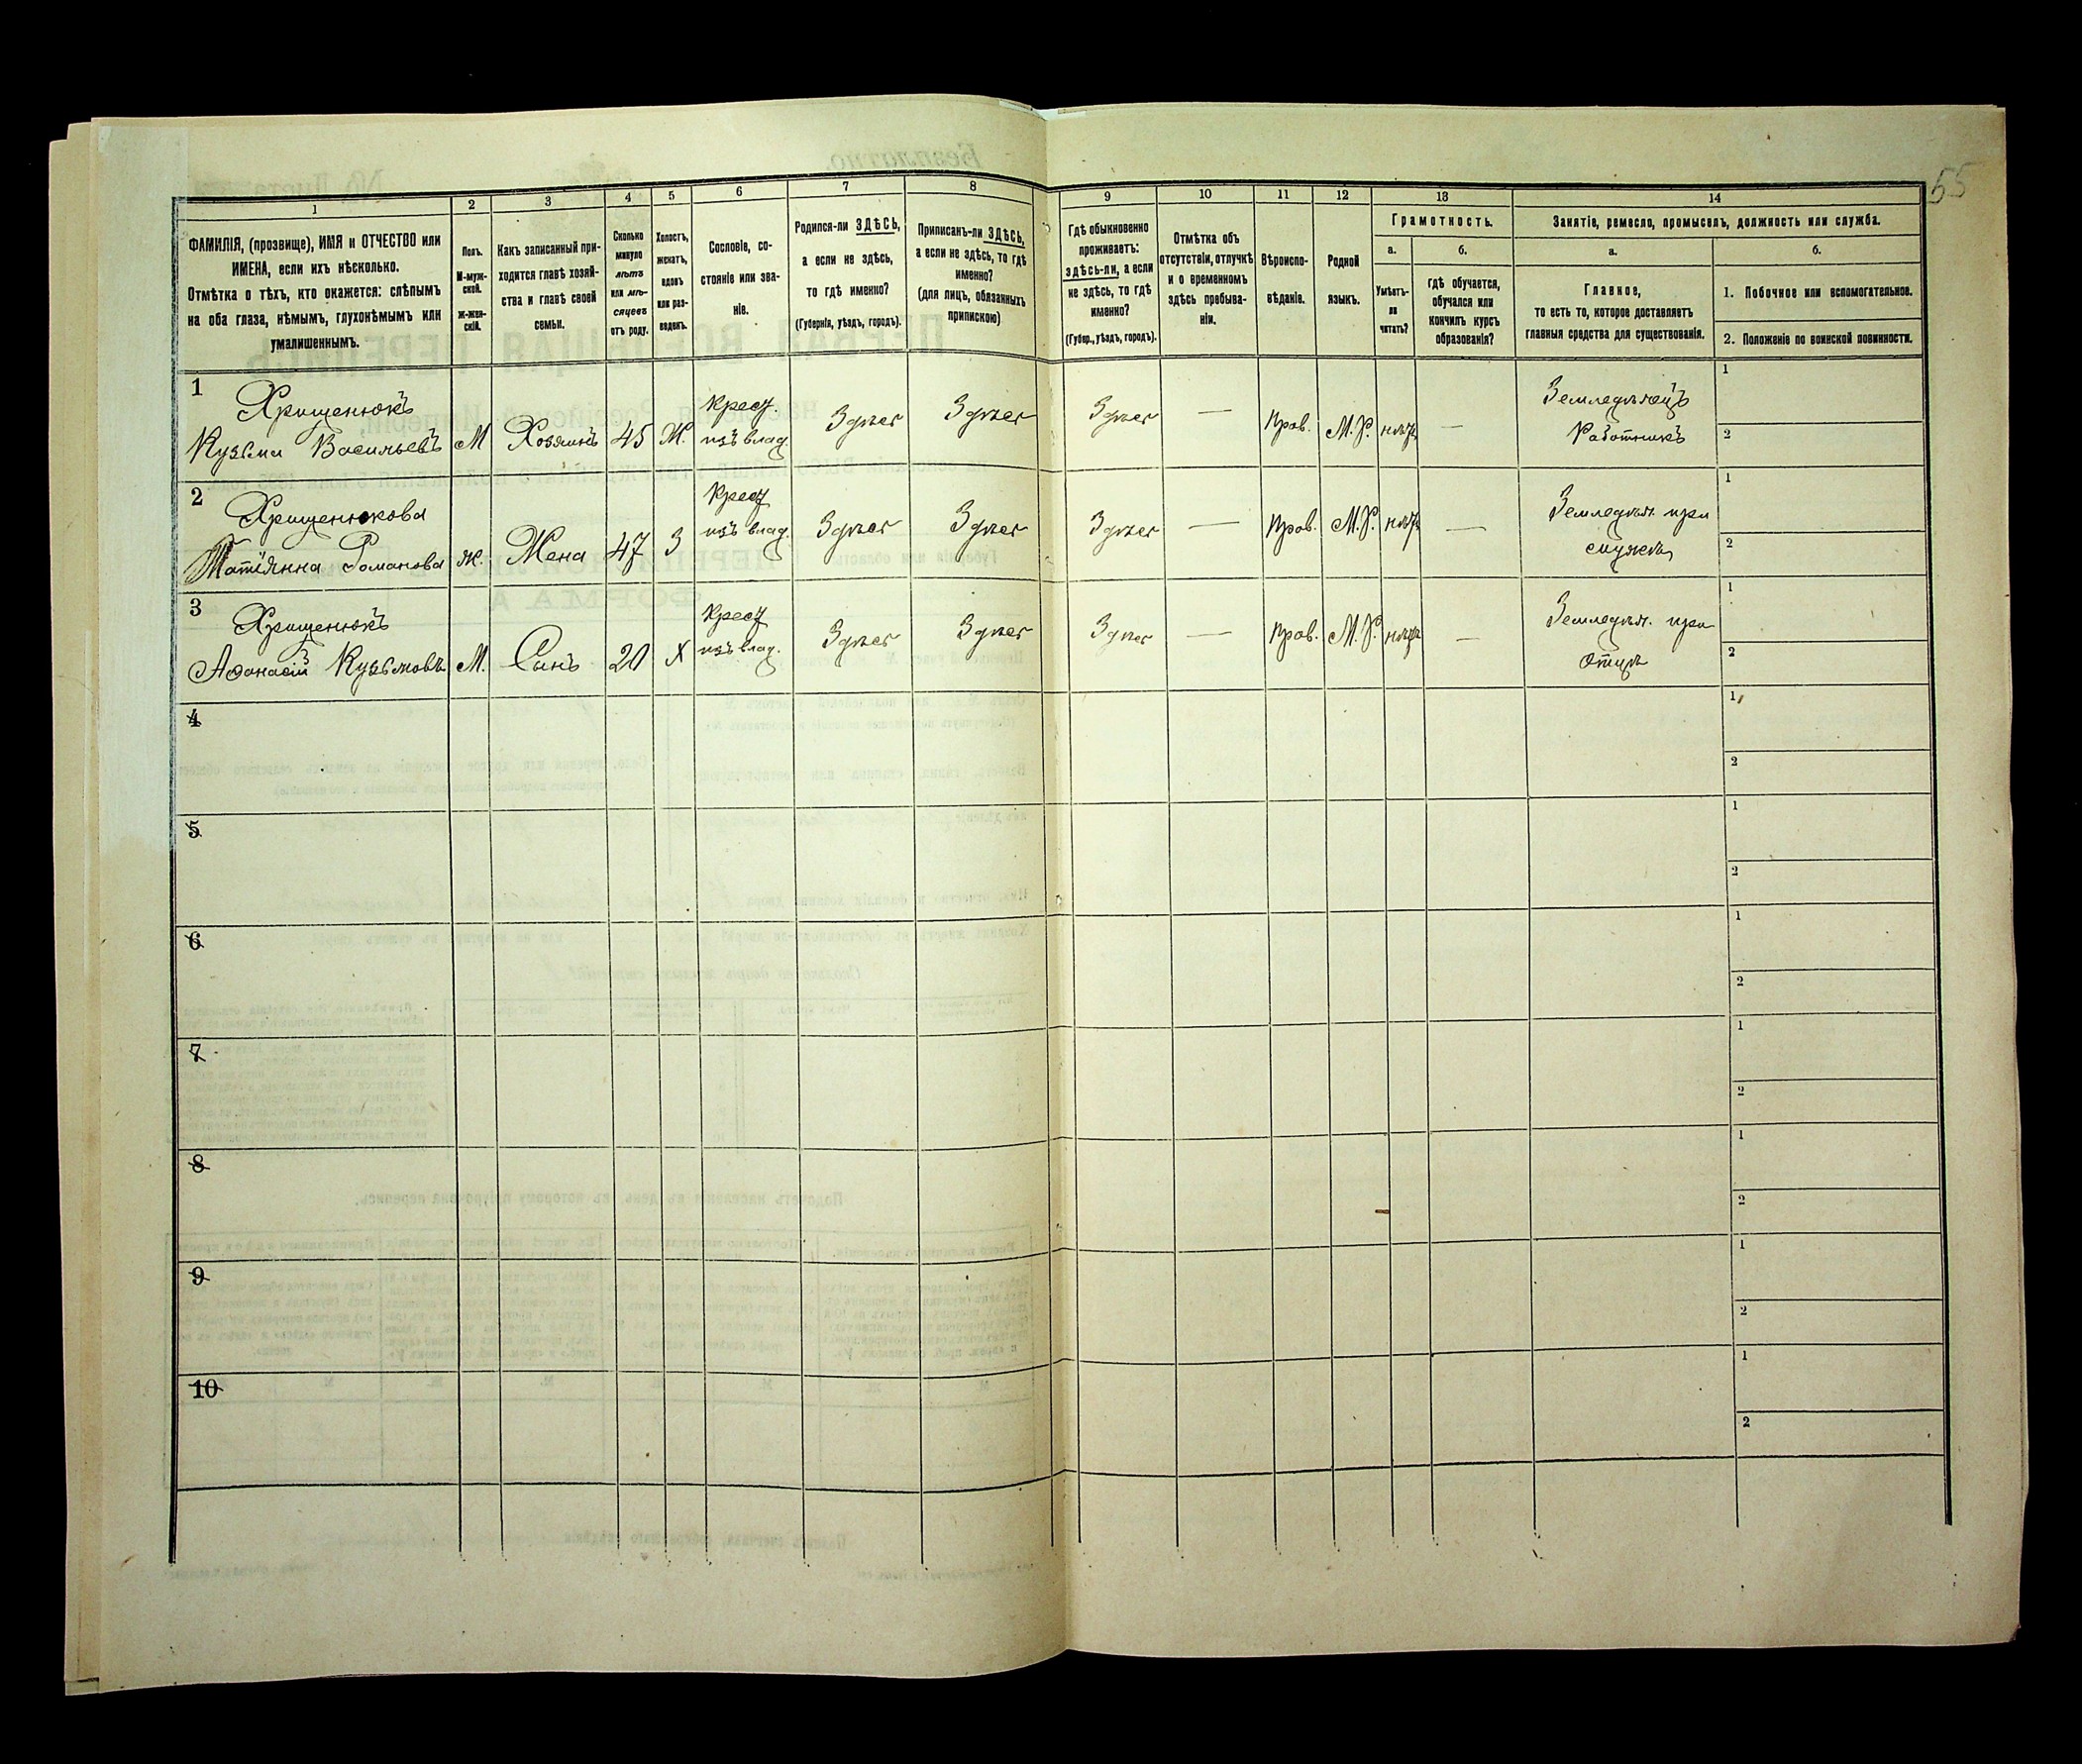 55
1
2
3
4
5
6
7
8
9
10
11
12
13
14
ФАМИЛІЯ, (прозвище), ИМЯ и ОТЧЕСТВО или
ИМЕНА, если ихъ нѣсколько.
Отмѣтка о тѣхъ, кто окажется: слѣпымъ
на оба глаза, нѣмымъ, глухонѣмымъ или
умалишеннымъ.
Полъ.
М-муж-
ской.
Ж-жен-
скій.
Какъ записанный при-
ходится главѣ хозяй-
ства и главѣ своей
семьи.
Сколько
минуло
лѣтъ
или мѣ-
сяцевъ
отъ роду.
Холостъ,
женатъ,
вдовъ
или раз-
веденъ.
Сословіе, со-
стояніе или зва-
ніе.
Родился-ли ЗДѢСЬ,
а если не здѣсь,
то гдѣ именно?
(Губернія, уѣздъ, городъ).
Приписанъ-ли ЗДѢСЬ,
а если не здѣсь, то гдѣ
именно?
(для лицъ, обязанныхъ
припискою)
Гдѣ обыкновенно
проживаетъ:
здѣсь-ли, а если
не здѣсь, то гдѣ
именно?
(Губер., уѣздъ, городъ).
Отмѣтка объ
отсутствіи, отлучкѣ
и о временномъ
здѣсь пребыва-
ніи.
Вѣроиспо-
вѣданіе.
Родной
языкъ.
Грамотность.
а.
б.
Умѣетъ-
ли
читать?
гдѣ обучается,
обучался или
кончилъ курсъ
образованія?
Занятіе, ремесло, промыселъ, должность или служба.
а.
б.
Главное,
то есть то, которое доставляетъ
главныя средства для существованія.
1. Побочное или вспомогательное.
2. Положеніе по воинской повинности.
1
Хрищенюкъ
Кузьма Васильевъ
М
Хозяинъ
45
Ж.
Крест.
изъ влад.
Здѣсь
Здѣсь
Здѣсь
—
Прав.
М. Р.
нѣтъ
—
Земледѣлецъ
Работникъ
1
2
2
Хрищенюкова
Татіянна Романова
Ж.
Жена
47
З
Крест
изъ влад.
Здѣсь
Здѣсь
Здѣсь
—
Прав.
М. Р.
нѣтъ
—
Земледѣл. при
мужѣ
1
2
3
Хрищенюкъ
Афанасій Кузьмовъ
М.
Сынъ
20
Х
Крест
изъ влад.
Здѣсь
Здѣсь
Здѣсь
—
Прав.
М. Р.
нѣтъ
—
Земледѣл. при
отцѣ
1
2
4
1
2
5
1
2
6
1
2
7
1
2
8
1
2
9
1
2
10
1
2